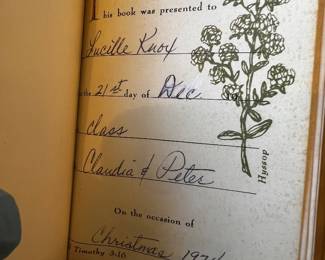 This book was presented to
Lucille Knox
the 21st day of Dec.
class
Claudia & Peter
On the occasion of
Christmas
Timothy
Hyssop